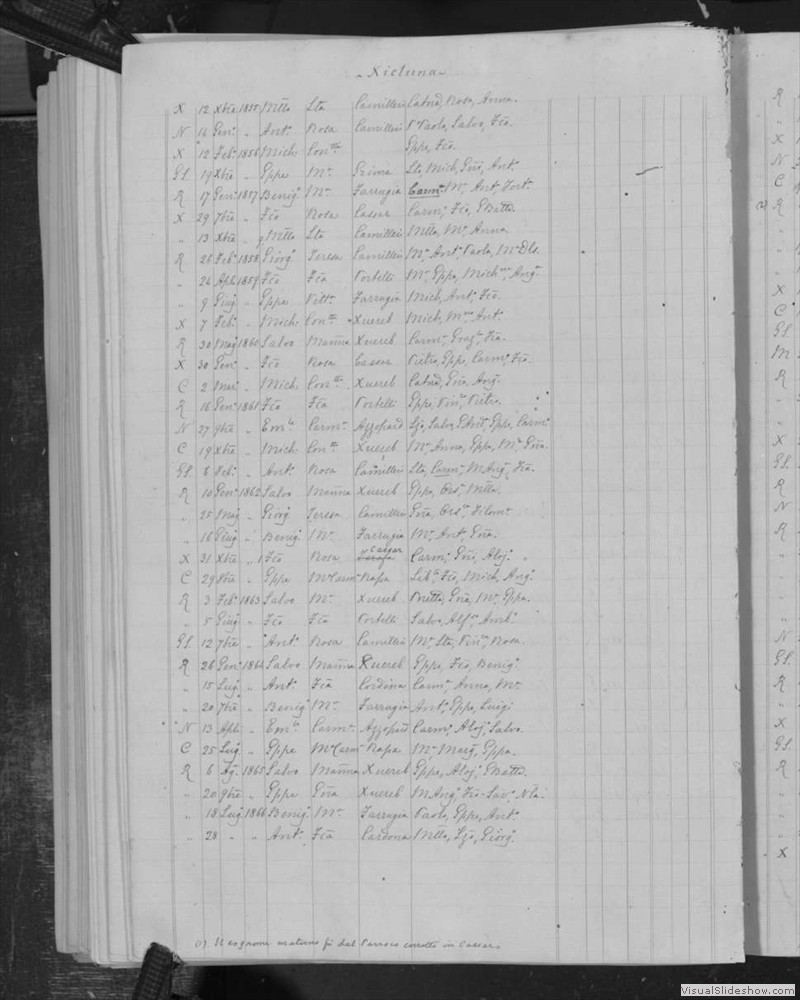 Xicluna
X 12 Xbre 1855 Mtto Lta Camilleri Catnā, Rosa, Anna.
N 14 Genn. " Ant. Rosa Camilleri Paolo, Salvo, Fcō.
X 12 Feb. 1856 Mich. Con. Gppe, Fcō.
GS. 19 Xbre " Gppe M. Grima Lta, Mich, Gnā, Ant.
R 17 Genn. 1857 Benig. M. Farrugia Carm. M. Ant, Fort.
X 29 7bre " Fcō Rosa Cassar Carm, Fcō, GBatta.
" 13 Xbre " Mtto Lta Camilleri Mtto, M. Anna.
R 26 Feb. 1858 Giorg. Teresa Camilleri M. Ant. Paola, M. Dls.
" 24 Apl. 1859 Fcō Fcā Portelli M. Gppe, Mich. Ang.
" 9 Giug. " Gppe Vitt. Farrugia Mich, Ant. Fcō.
X 7 Feb. " Mich. Con. Xuereb Mich, M. Ant.
R 30 Mag. 1860 Salvo Marina Xuereb Carm. Fcā.
X 30 Genn. " Fcō Rosa Cassar Pietro, Gppe, Carm. Fcō.
C 2 Mar. " Mich. Con. Xuereb Catnā, Gnā, Ang.
R 16 Genn. 1861 Fcō Fcā Portelli Gppe, Vin. Pietro.
N 27 9bre " Em. Carm. Azzopard Lzo, Salvo, GAnt, Gppe, Carm.
C 19 Xbre " Mich. Con. Xuereb M. Anna, Gppa, M. Gnā.
GS. 6 Feb. " Ant. Rosa Camilleri Lta, Carm. M Ang. Fcā.
R 10 Genn. 1862 Salvo Marina Xuereb Gppa, Ors. Mtta.
" 25 Mag. " Giorg. Teresa Camilleri Gnā, Ors. Filom.
" 16 Giug. " Benig. M. Farrugia M. Ant, Gnā.
X 31 Xbre " Fcō Rosa Cassar Carm. Gnō, Aloj.
C 29 8bre " Gppe M Carm. Rapa Lib. Fcō, Mich, Ang.
R 3 Feb. 1863 Salvo M. Xuereb Gnā, M. Gppa.
" 5 Giug. " Fcō Fcā Portelli Salvo, Alf. Amb.
GS. 12 7bre " Ant. Rosa Camilleri M. Lta, Vin. Rosa.
R 26 Genn. 1864 Salvo Marina Xuereb Gppe, Fcō, Benig.
" 15 Lug. " Ant. Fcā Cordina Carm. Anna, M.
" 20 7bre " Benig. M. Farrugia Ant. Gppe, Luigi
N 13 Apl. " Em. Carm. Azzopard Carm. Aloj. Salvo.
C 25 Lug. " Gppe M Carm. Rapa M. Marg. Gppa.
R 6 Ag. 1865 Salvo Marina Xuereb Gppe, Aloj. GBatta.
" 20 9bre " Gppe Gnā Xuereb M Ang. Fcā-Sav. Nla.
" 18 Lug. 1866 Benig. M. Farrugia Paolo, Gppe, Ant.
" 28 " " Ant. Fcā Cardona Mtto, Lzo, Giorg.
(1). Il cognome materno fù dal Parroco corretto in Cassar.
VisualSlideshow.com